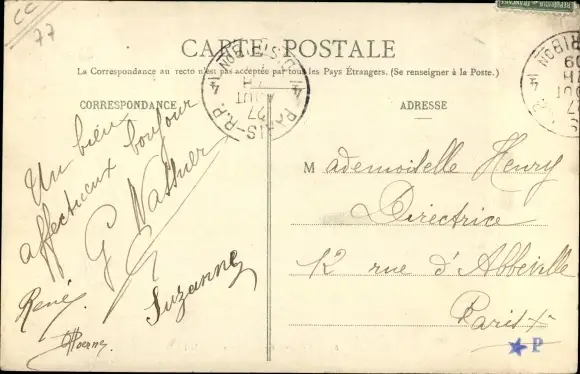 CC
77
CARTE POSTALE
La Correspondance au recto n'est pas acceptée par tous les Pays Étrangers. (Se renseigner à la Poste.)
CORRESPONDANCE
Un bien
affectueux bonjour
G Wassner
René
Suzanne
ADRESSE
Mademoiselle Henry
Directrice
12 rue d'Abbeville
Paris X
P
PARIS-R.P.
27